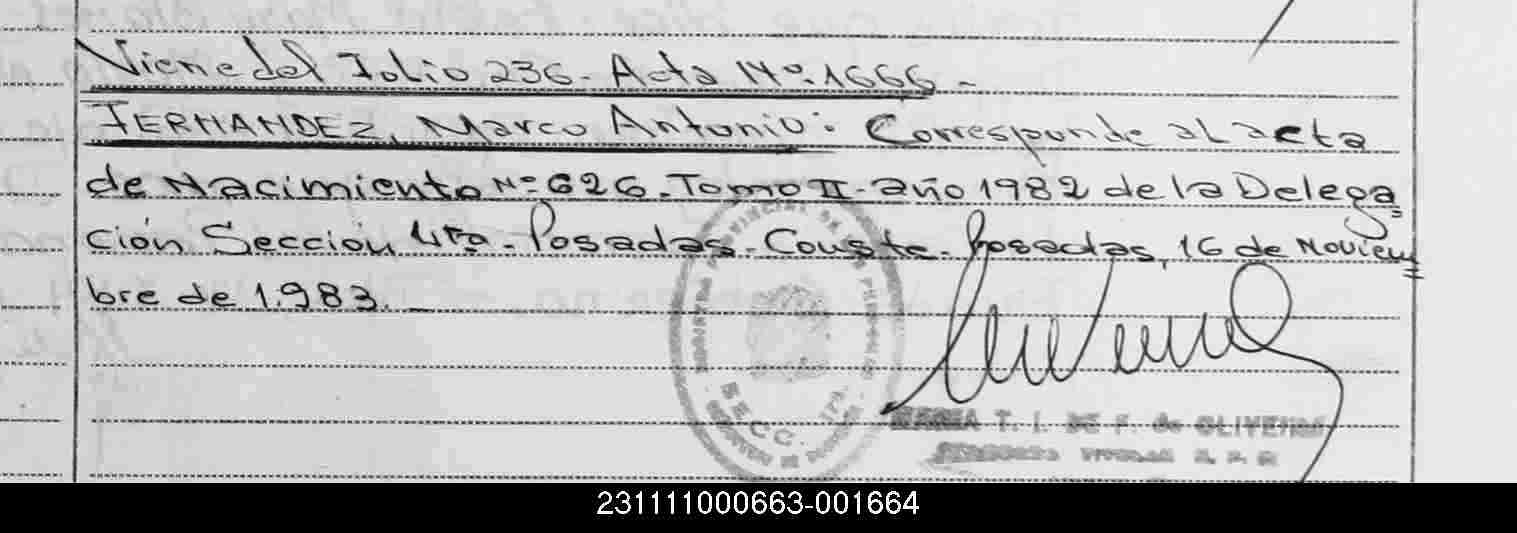 Viene del Folio 236- Acta Nº.1666-
FERNANDEZ, Marco Antonio: Corresponde al acta
de Nacimiento Nº 626. Tomo II- año 1982 de la Delega=
ción Sección 4ta- Posadas- Conste- Posadas, 16 de Noviem=
bre de 1.983.
MARIA T. I. DE F. de OLIVEIRA
231111000663-001664